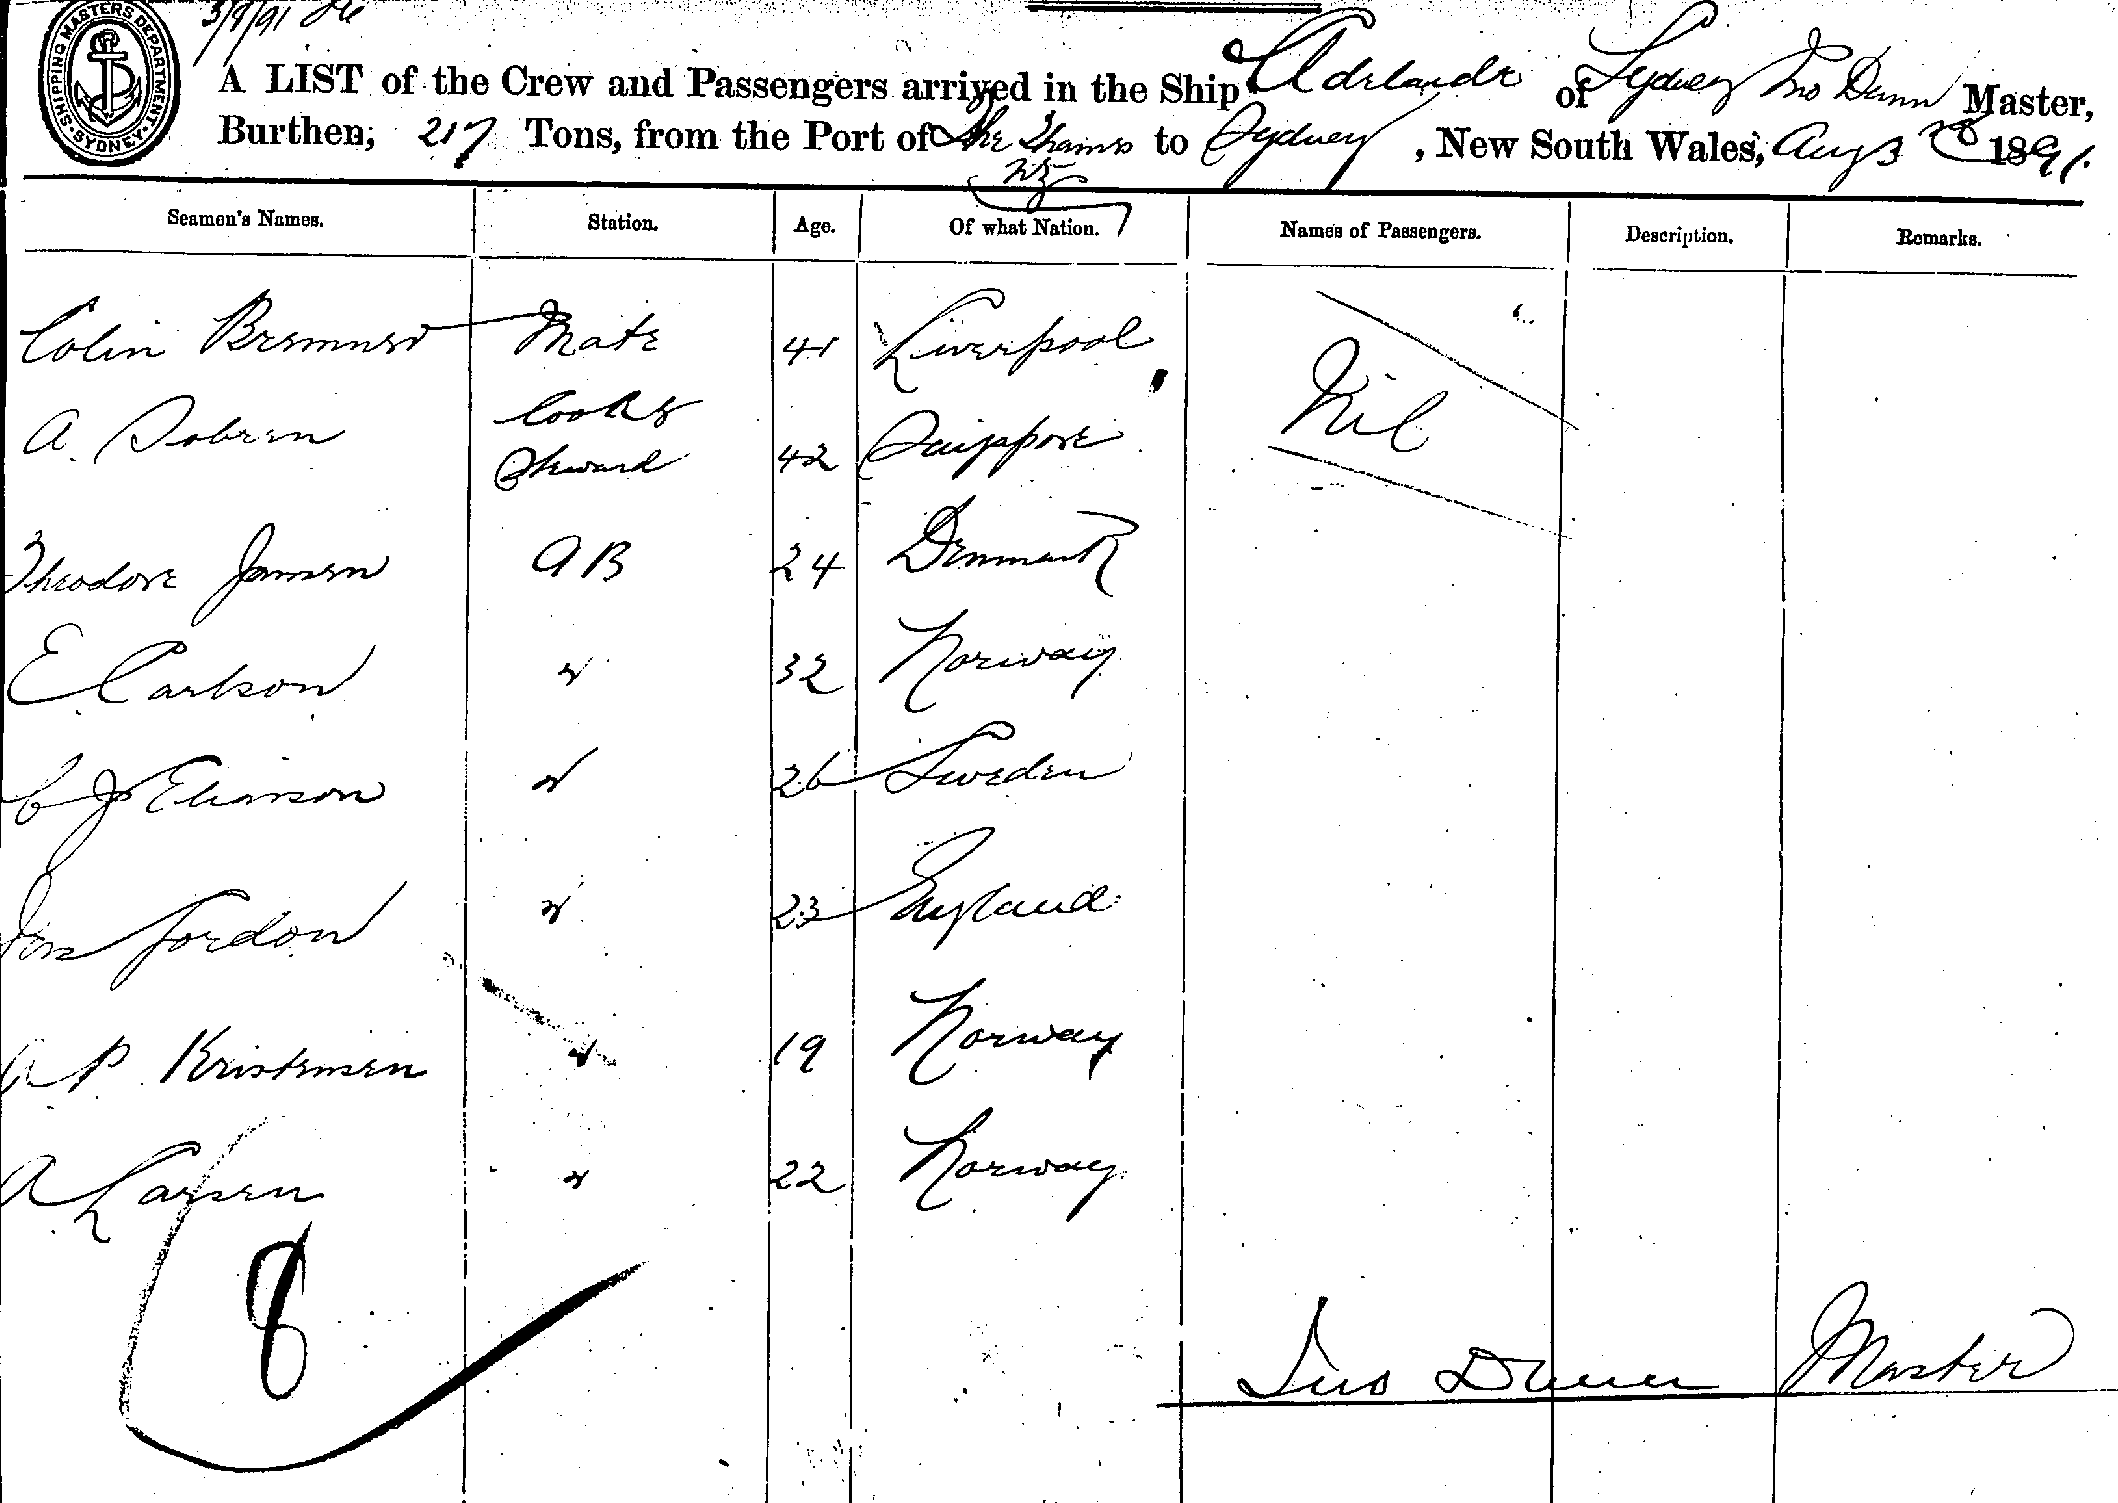 3/8/91
SHIPPING MASTERS DEPARTMENT SYDNEY
A LIST of the Crew and Passengers arrived in the Ship Adelaide of Sydney Jno Dunn Master,
Burthen, 217 Tons, from the Port of The Thames to Sydney, New South Wales, Aug 3rd 1891.
NZ
Seamen's Names. Station. Age. Of what Nation. Names of Passengers. Description. Remarks.
Colin Bremner Mate 41 Liverpool
Nil
A. Cook &
Steward 42
Theodore Jansen AB 24 Denmark
E. Carlson " 32 Norway
C J Elianson " 26 Sweden
Gordon " 23 England
A P Kristensen " 19 Norway
A Larsen " 22 Norway
8
Jno Dunn Master